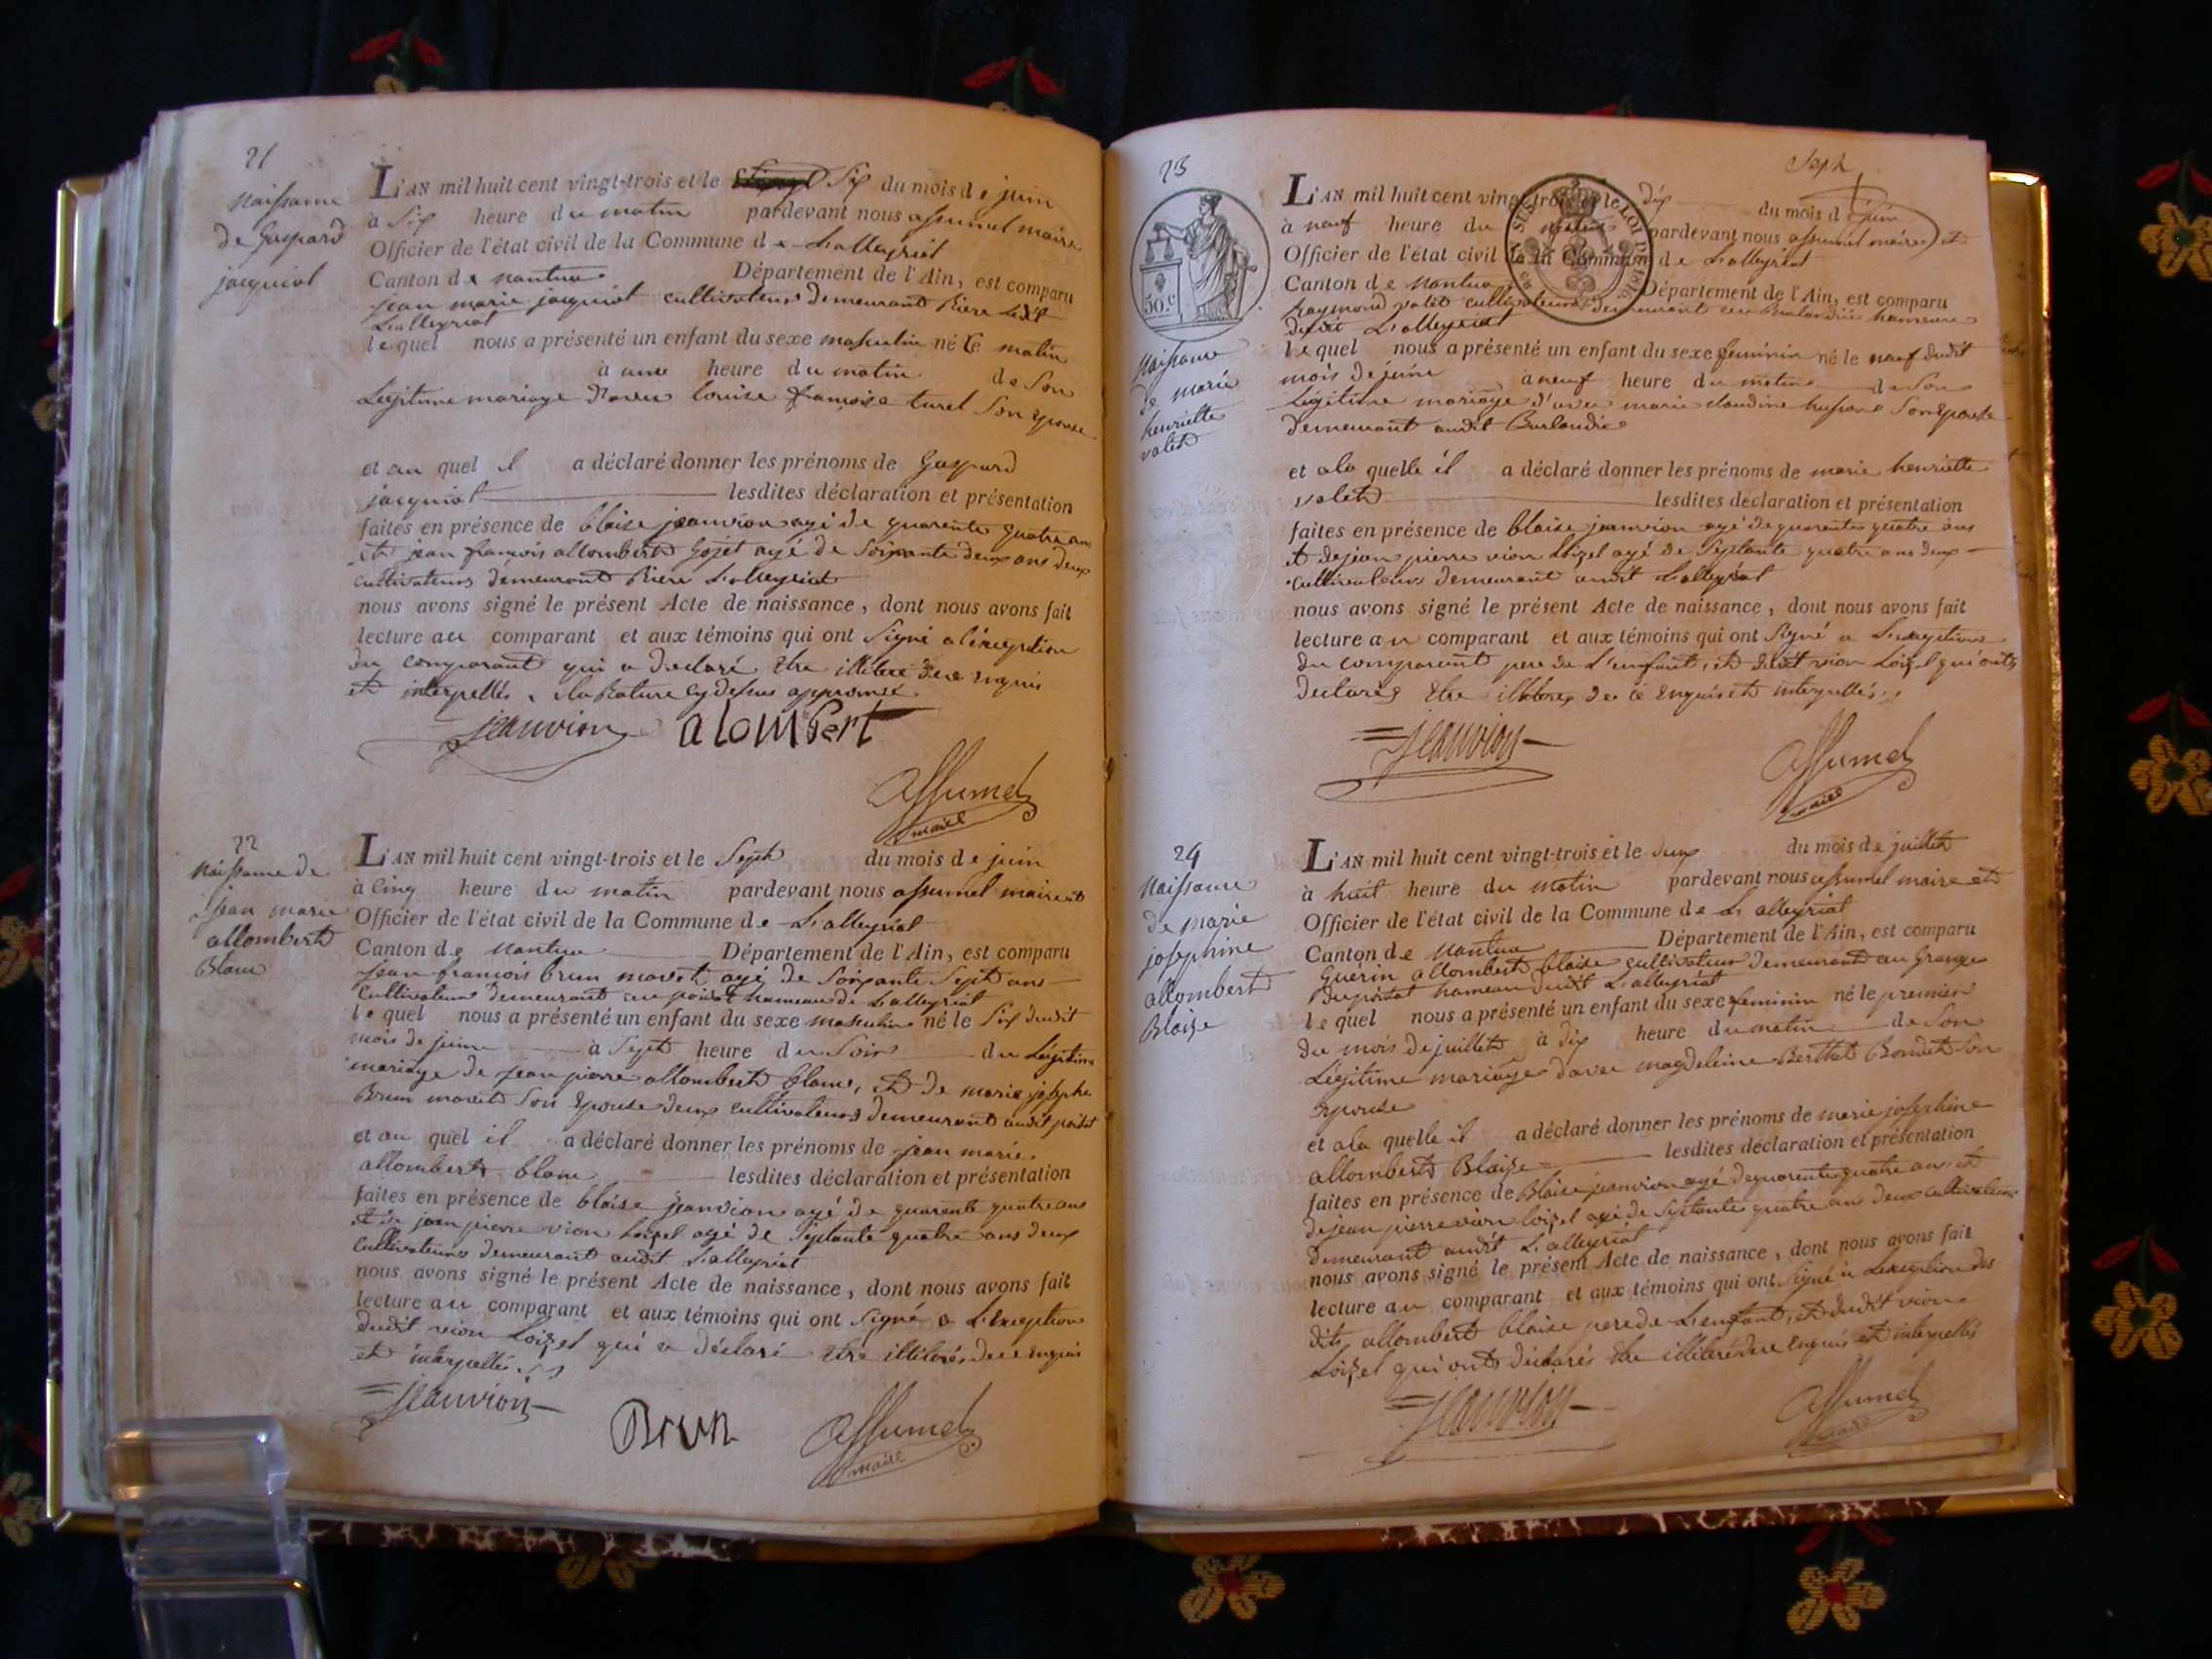 21
Naissance
de Gaspard
jacquiot
L'AN mil huit cent vingt-trois et le Six du mois de juin
à Six heure du matin pardevant nous assumel maire
Officier de l'état civil de la Commune de L'alleyriat
Canton de nantua Département de l'Ain, est comparu
jean marie jacquiot cultivateur demeurant Riere ledit
L'alleyriat
lequel nous a présenté un enfant du sexe masculin né le matin
à une heure du matin de Son
Légitime mariage d'avec louise françoise turel Son epouse
et au quel il a déclaré donner les prénoms de Gaspard
jacquiot lesdites déclaration et présentation
faites en présence de blaise jeanvion agé de quarente quatre ans
et jean francois allombert Gojet agé de Soixante deux ans deux
cultivateurs demeurant Riere L'alleyriat
nous avons signé le présent Acte de naissance, dont nous avons fait
lecture au comparant et aux témoins qui ont Signé a l'exception
du comparant qui a declaré etre illiteré de ce enquis
et interpellés, la Rature cy dessus approuvé
jeanvion alombert
Assumel
maire
22
Naissance de
jean marie
allombert
Blanc
L'AN mil huit cent vingt-trois et le Sept du mois de juin
à cinq heure du matin pardevant nous assumel maire et
Officier de l'état civil de la Commune de L'alleyriat
Canton de Nantua Département de l'Ain, est comparu
jean francois brun movet agé de Soixante Sept ans
cultivateur demeurant au poizat hameau de L'alleyriat
lequel nous a présenté un enfant du sexe masculin né le Six dudit
mois de juin à Sept heure du Soir du Légitime
mariage de jean pierre allombert blanc, et de marie josephe
Brun movet Son Epouse deux cultivateurs demeurant audit poizat
et au quel il a déclaré donner les prénoms de jean marie
allombert blanc lesdites déclaration et présentation
faites en présence de blaise jeanvion agé de quarente quatre ans
et de jean pierre vion Loizel agé de Septante quatre ans deux
cultivateurs demeurant audit L'alleyriat
nous avons signé le présent Acte de naissance, dont nous avons fait
lecture au comparant et aux témoins qui ont Signé a L'exception
dudit vion Loizel qui a déclaré etre illiterés de ce enquis
et interpellé
jeanvion
Brun
Assumel
maire
Sept
23
50.c
Naissance
de marie
henriette
valet
L'AN mil huit cent vingt-trois et le dix du mois de juin
à neuf heure du matin pardevant nous assumel maire et
Officier de l'état civil de la Commune de L'alleyriat
Canton de Nantua Département de l'Ain, est comparu
Raymond valet cultivateur demeurant en Burlandie hameau
dudit L'alleyriat
lequel nous a présenté un enfant du sexe feminin né le neuf dudit
mois de juin à neuf heure du matin de Son
Légitime mariage d'avec marie claudine Son Epouse
demeurant audit Burlandie
et a la quelle il a déclaré donner les prénoms de marie henriette
valet lesdites déclaration et présentation
faites en présence de blaise jeanvion agé de quarente quatre ans
et de jean pierre vion Loizel agé de Septante quatre ans deux
cultivateurs demeurant audit L'alleyriat
nous avons signé le présent Acte de naissance, dont nous avons fait
lecture au comparant et aux témoins qui ont Signé a L'exception
du comparant pere de L'enfant, et dudit vion Loizel qui ont
declarés Etre illiterés de ce Enquis et interpellés
jeanvion
Assumel
maire
24
Naissance
de marie
josephine
allombert
Blaize
L'AN mil huit cent vingt-trois et le deux du mois de juillet
à huit heure du matin pardevant nous assumel maire et
Officier de l'état civil de la Commune de L'alleyriat
Canton de Nantua Département de l'Ain, est comparu
Guérin allombert blaise cultivateur demeurant au Granges
du poizat hameau dudit L'alleyriat
lequel nous a présenté un enfant du sexe feminin né le premier
du mois de juillet à dix heure du matin de Son
Légitime mariage d'avec magdeleine Berthet Bondet Son
epouse
et a la quelle il a déclaré donner les prénoms de marie josephine
allombert Blaize lesdites déclaration et présentation
faites en présence de Blaise jeanvion agé de quarente quatre ans et
de jean pierre vion loizel agé de Septante quatre ans deux cultivateurs
demeurant audit L'alleyriat
nous avons signé le présent Acte de naissance, dont nous avons fait
lecture au comparant et aux témoins qui ont Signé a L'exception des
dits allombert blaize pere de L'enfant, et dudit vion
Loizel qui ont declarés etre illiteré de ce Enquis et interpellés
jeanvion
Assumel
maire